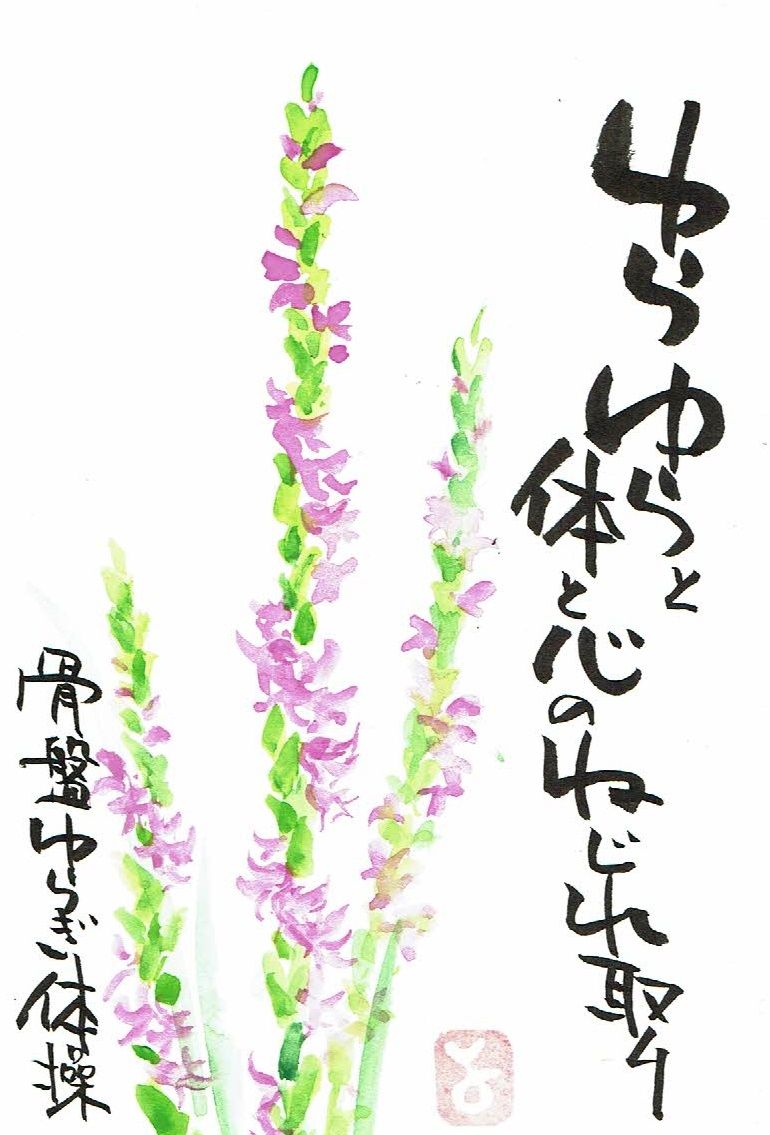 ゆらゆらと
体と心のねじれ取り
骨盤ゆらぎ体操
と